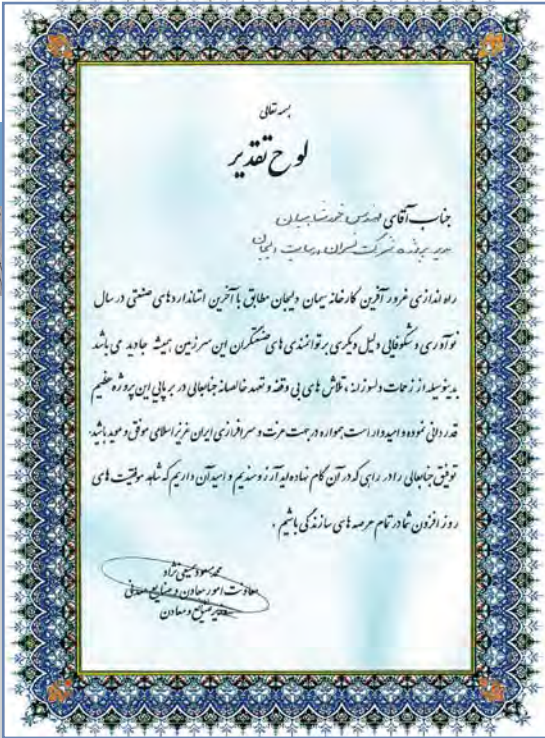 بسمه تعالی
لوح تقدیر
جناب آقای مهندس
مدیر پروژه شرکت در سایت دلیجان
راه اندازی غرور آفرین کارخانه سیمان دلیجان مطابق با آخرین استانداردهای صنعتی در سال
نوآوری و شکوفائی دلیل دیگری بر توانمندی های صنعتگران این سرزمین همیشه جاوید می باشد
بدینوسیله از زحمات دلسوزانه ، تلاش های بی وقفه و تعهد خالصانه جنابعالی در برپایی این پروژه عظیم
قدردانی نموده و امیدوار است همواره در جهت عزت و سرافرازی ایران عزیز اسلامی موفق و موید باشید.
توفیق جنابعالی را در راهی که در آن گام نهاده اید آرزومندیم و امید آن داریم که شاهد موفقیت های
روز افزون شما در تمام عرصه های سازندگی باشیم .
محمد مسعود سمیعی نژاد
معاونت امور معادن و صنایع معدنی
وزیر صنایع و معادن